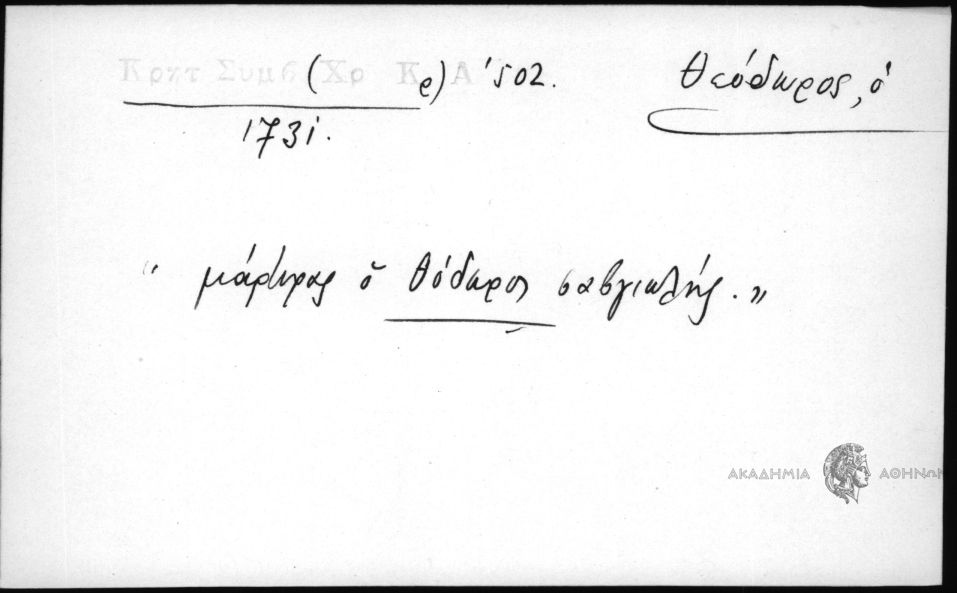 Κρητ Συμβ (Χρ Κ Α ρ) '502.
Θεόδωρος, ὁ
1731.
" μάρτυρας ὁ Θόδωρος σαβγιωλής. "
ΑΚΑΔΗΜΙΑ ΑΘΗΝΩΝ